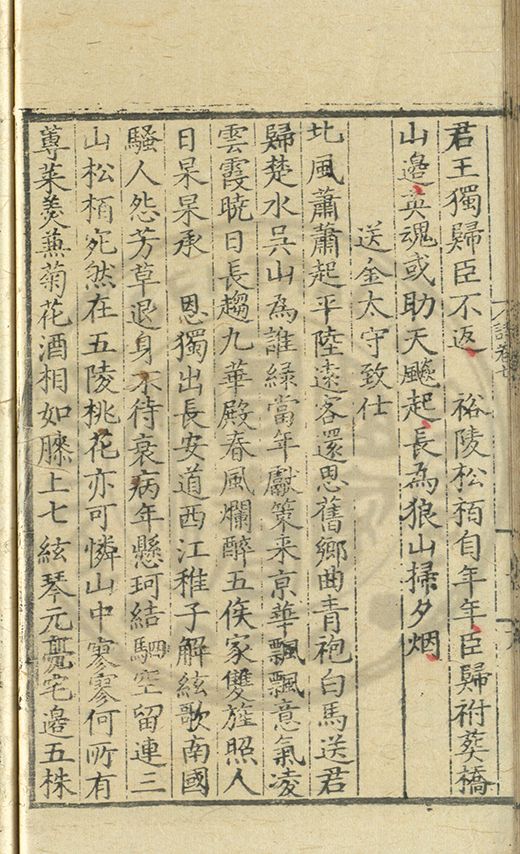 君王獨歸臣不返　裕陵松栢自年年臣歸祔葬橋
山邉英魂或助天飈起長為狼山掃夕烟
送金太守致仕
北風蕭蕭起平陸遠客還思舊鄉曲青袍白馬送君
歸楚水吳山為誰緑當年獻策来京華飄飄意氣凌
雲霞曉日長趨九華殿春風爛醉五侯家雙旌照人
日杲杲承　恩獨出長安道西江稚子解絃歌南國
騷人怨芳草退身不待衰病年懸珂結駟空留連三
山松栢宛然在五陵桃花亦可憐山中寥寥何所有
蓴菜羮兼菊花酒相如膝上七絃琴元亮宅邉五株
詩卷七